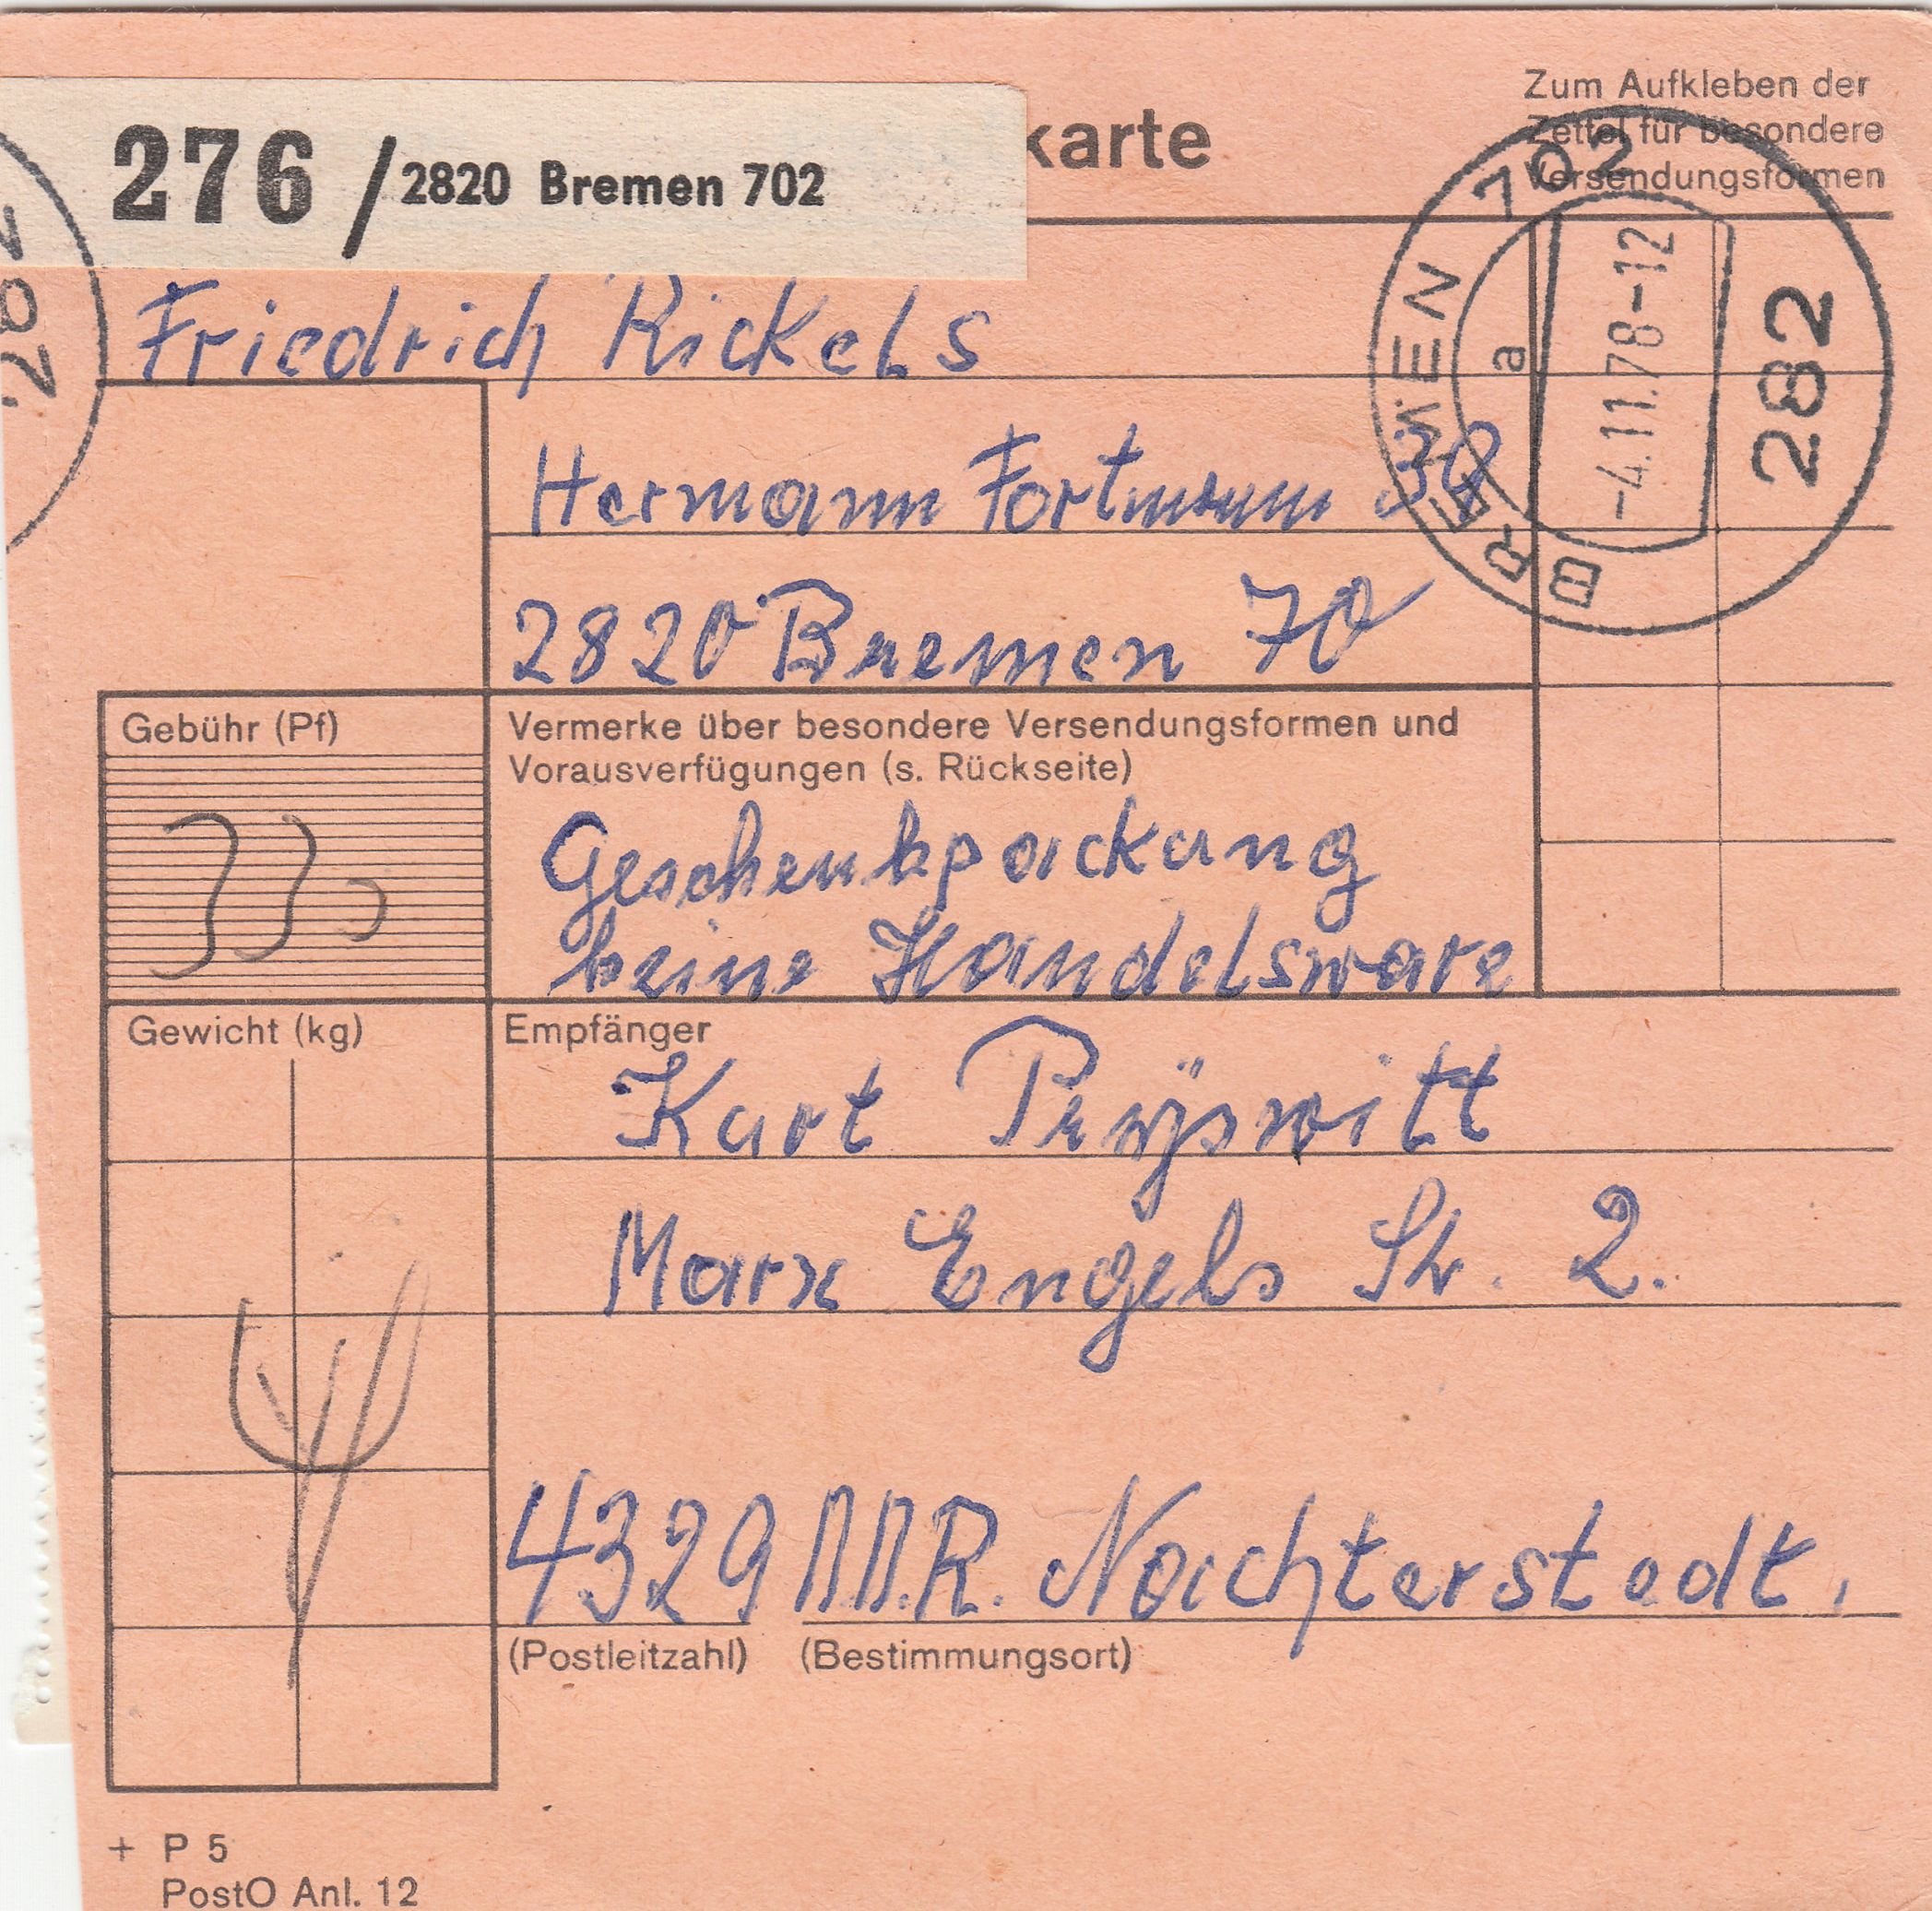 Zum Aufkleben der
Zettel für besondere
Versendungsformen
karte
276 / 2820 Bremen 702
BREMEN 702
a
-4.11.78-12
282
282
Friedrich Rickels
Hermann Fortmann 30
2820 Bremen 70
Gebühr (Pf)
Vermerke über besondere Versendungsformen und
Vorausverfügungen (s. Rückseite)
Geschenkpackung
keine Handelsware
Gewicht (kg)
Empfänger
Kurt
Marx Engels Str. 2.
4329 DD.R. Nachterstedt.
(Postleitzahl) (Bestimmungsort)
+ P 5
PostO Anl. 12